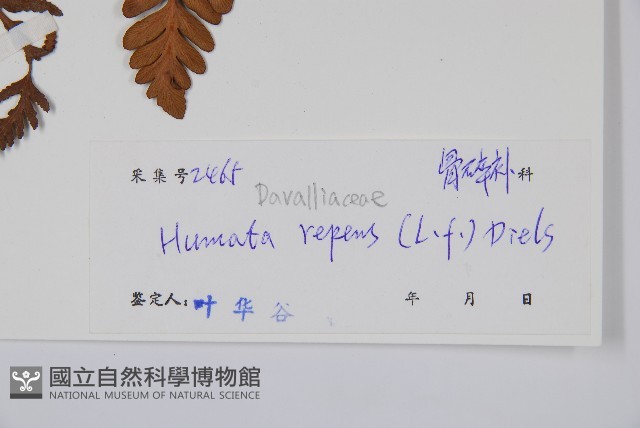 采集号 2465 骨碎补 科
Davalliaceae
Humata repens (L.f.) Diels
鉴定人: 叶华谷 年 月 日
國立自然科學博物館
NATIONAL MUSEUM OF NATURAL SCIENCE